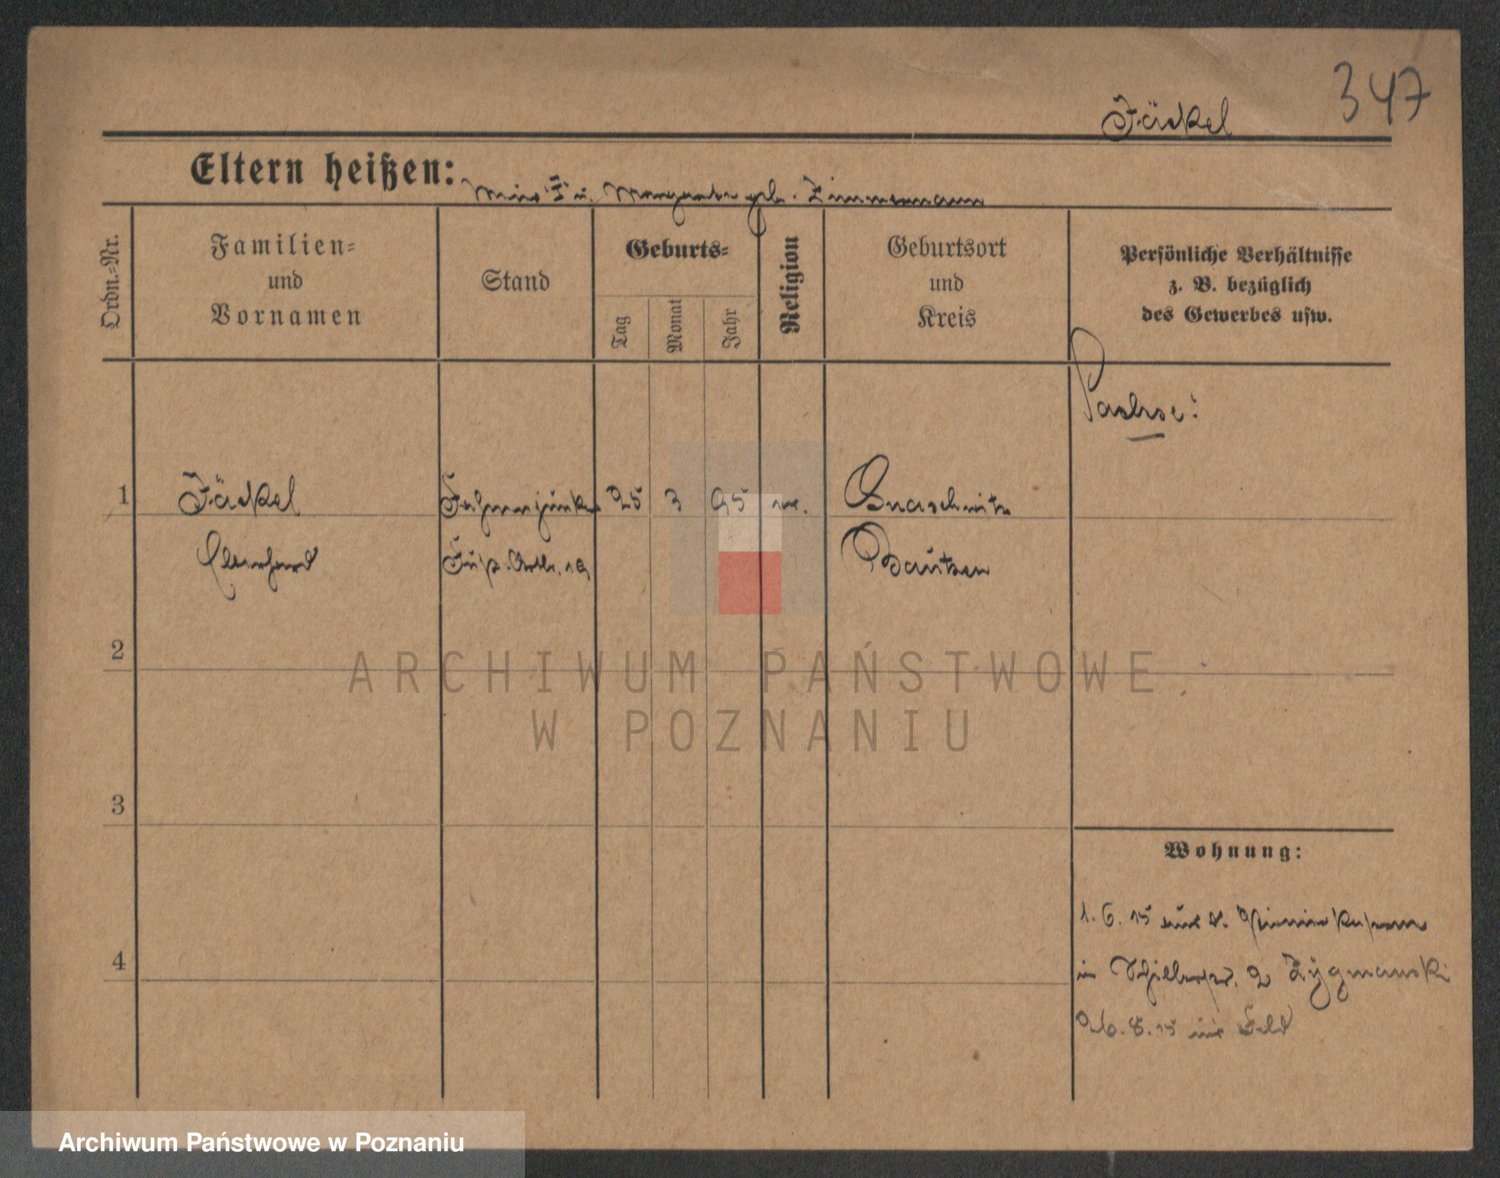 347
Jäckel
Eltern heißen: u. Margarete geb. Zimmermann
Ordn.-Nr.
Familien-
und
Vornamen
Stand
Geburts-
Tag
Monat
Jahr
Religion
Geburtsort
und
Kreis
Persönliche Verhältnisse
z. B. bezüglich
des Gewerbes usw.
Sachse:
1 Jäckel Fahnenjunker 25 3 95 ev.
Eberhard Fuß. Artl. 19 Bautzen
2
3
4
Wohnung:
1. 6. 15 aus d.
in 2 Zygmanski
26. 8. 15 ins Feld
ARCHIWUM PAŃSTWOWE
W POZNANIU
Archiwum Państwowe w Poznaniu